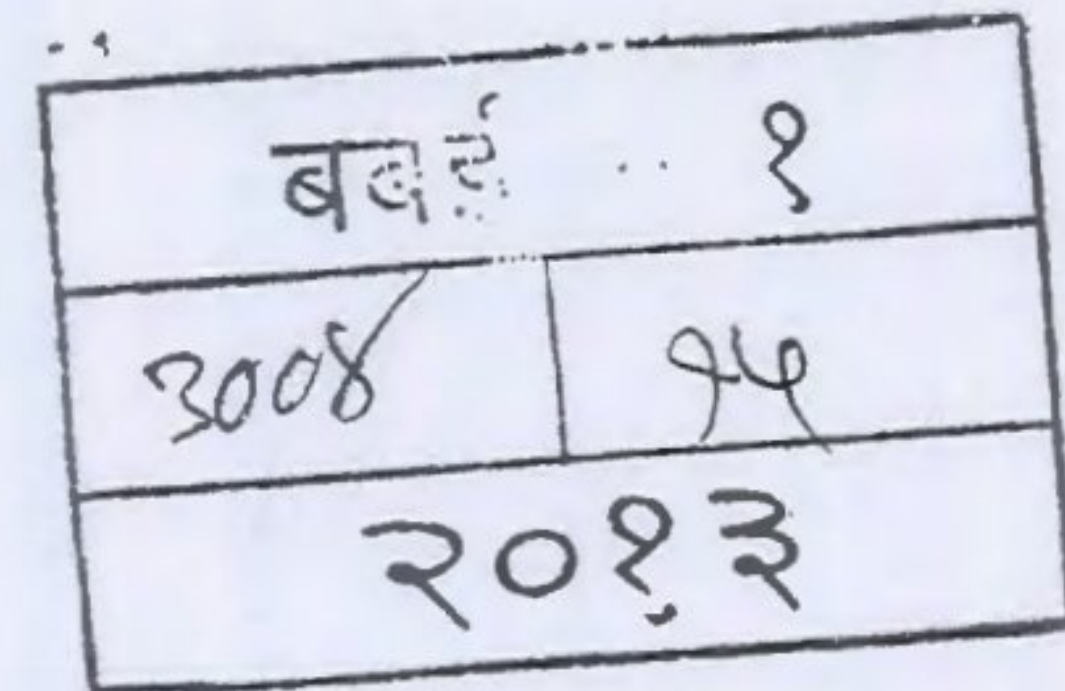 बबई - १
३००४ १५
२०१३